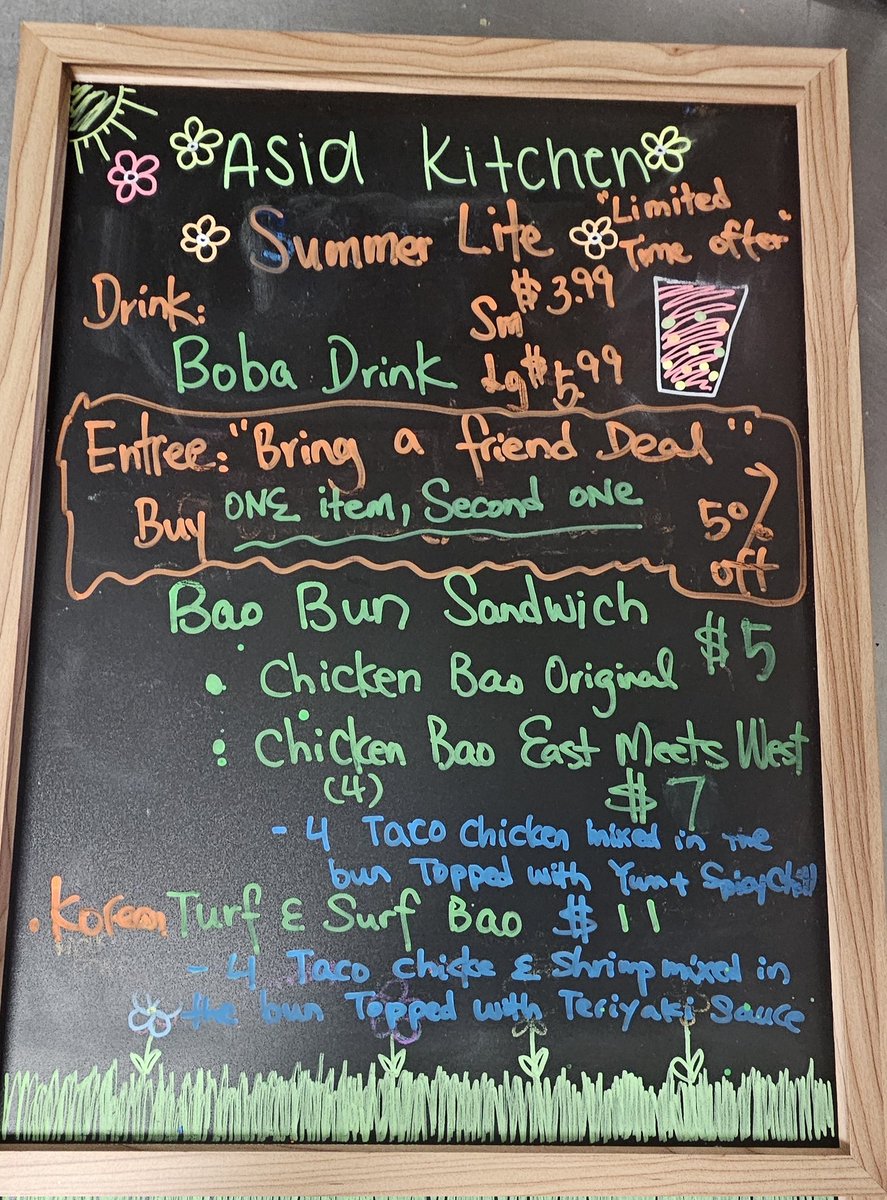 Asia Kitchen
Summer Lite "Limited Time offer"
Drink: Sm $3.99
Boba Drink Lg $5.99
Entree: "Bring a friend Deal"
Buy ONE item, Second ONE 5% off
Bao Bun Sandwich
• Chicken Bao Original $5
• Chicken Bao East Meets West
(4) $7
- 4 Taco Chicken mixed in the
bun Topped with Yum + Spicy Chili
• Korean Turf & Surf Bao $11
- 4 Taco chicke & Shrimp mixed in
the bun Topped with Teriyaki Sauce